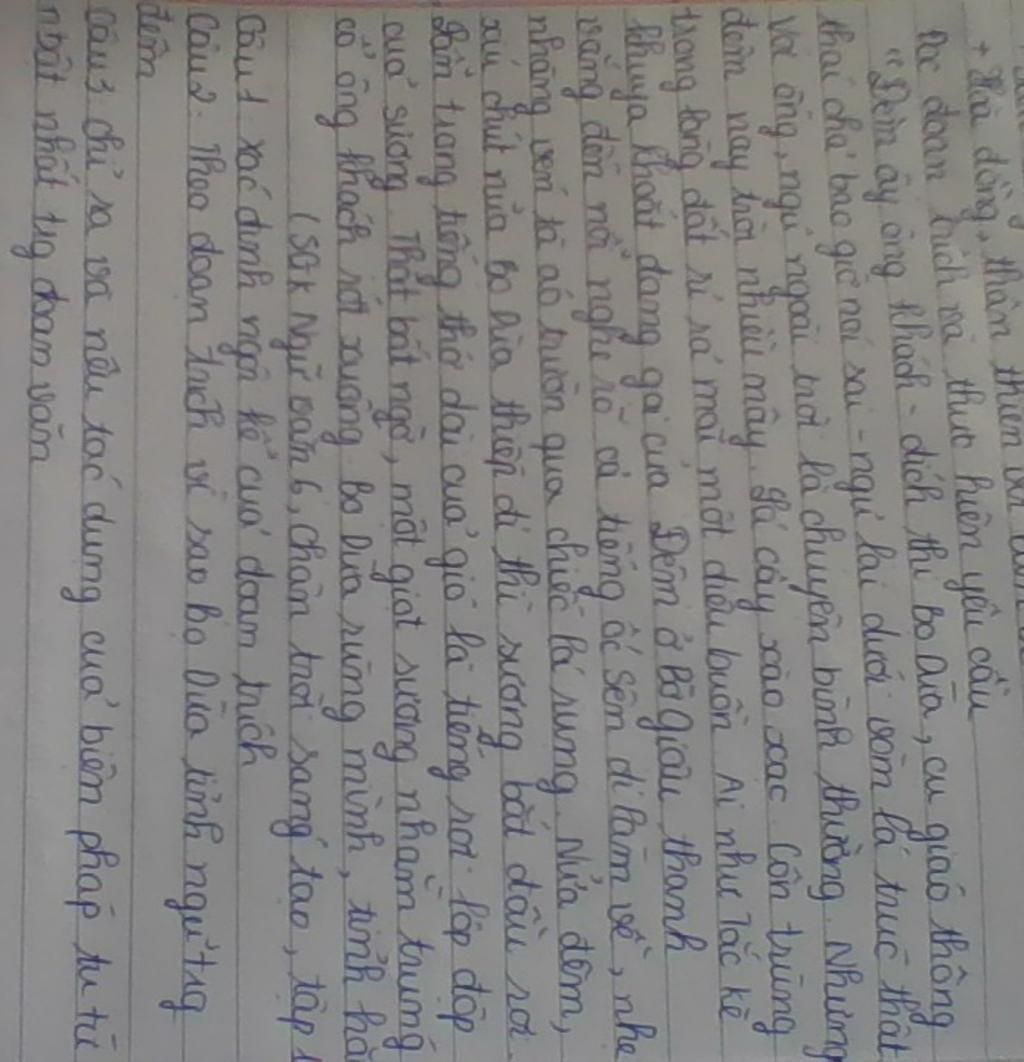 + Hòa đồng, thân thiện với
Đọc đoạn trích và thực hiện yêu cầu
"Đêm ấy ông khách - đích thị bọ Dừa, cụ giáo thông
thái chả bao giờ nói sai - ngủ lại dưới vòm lá trúc thật
Với ông, ngủ ngoài trời là chuyện bình thường. Nhưng
đêm nay trời nhiều mây. Lá cây xào xạc. Côn trùng
trong lòng đất rỉ rả mãi một điệu buồn. Ai như Tắc kè
khuya khoắt đang gọi cửa. Đêm ở Bờ Giậu thanh
vắng đến nỗi nghe rõ cả tiếng ốc Sên đi làm về, nhẹ
nhàng vén tà áo trườn qua chiếc lá rụng. Nửa đêm,
xíu chút nữa bọ Dừa thiếp đi thì sương bắt đầu rơi.
Lẫn trong tiếng thở dài của gió là tiếng rơi lộp độp
của sương. Thật bất ngờ, một giọt sương nhằm trúng
cổ ông khách rớt xuống. bọ Dừa rùng mình, tỉnh hẳ
(SGK Ngữ văn 6, chân trời sáng tạo, tập 1
Câu 1 xác định ngôi kể của đoạn trích
Câu 2: Theo đoạn trích vì sao bọ Dừa tỉnh ngủ trg
đêm
Câu 3: chỉ ra và nêu tác dụng của biện pháp tu từ
nbật nhất trg đoạn văn